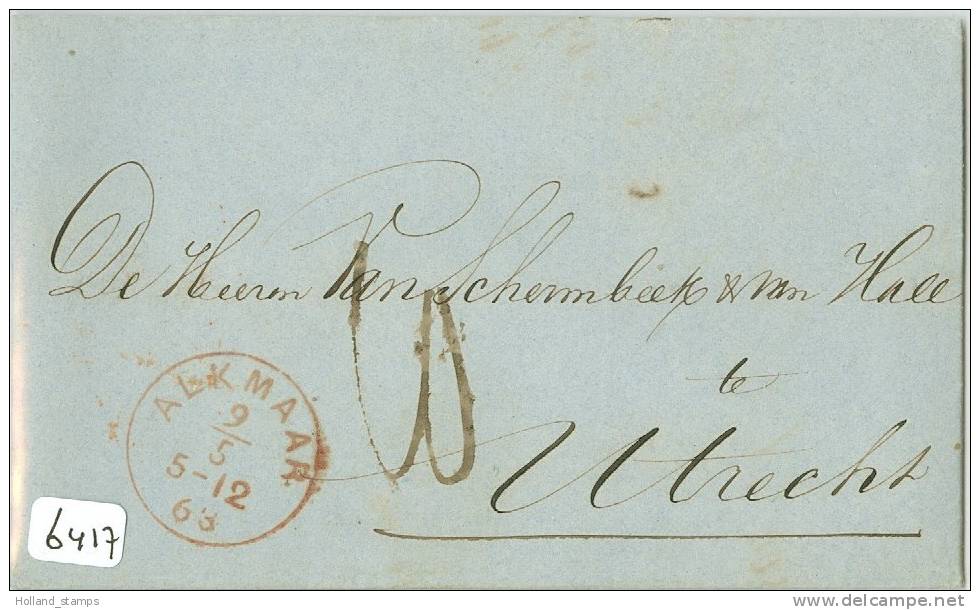 De Heeren Van Schermbeek & van Hall
te
Utrecht
10
ALKMAAR
9/5
5-12
63
6417
Holland_stamps
delcampe.net